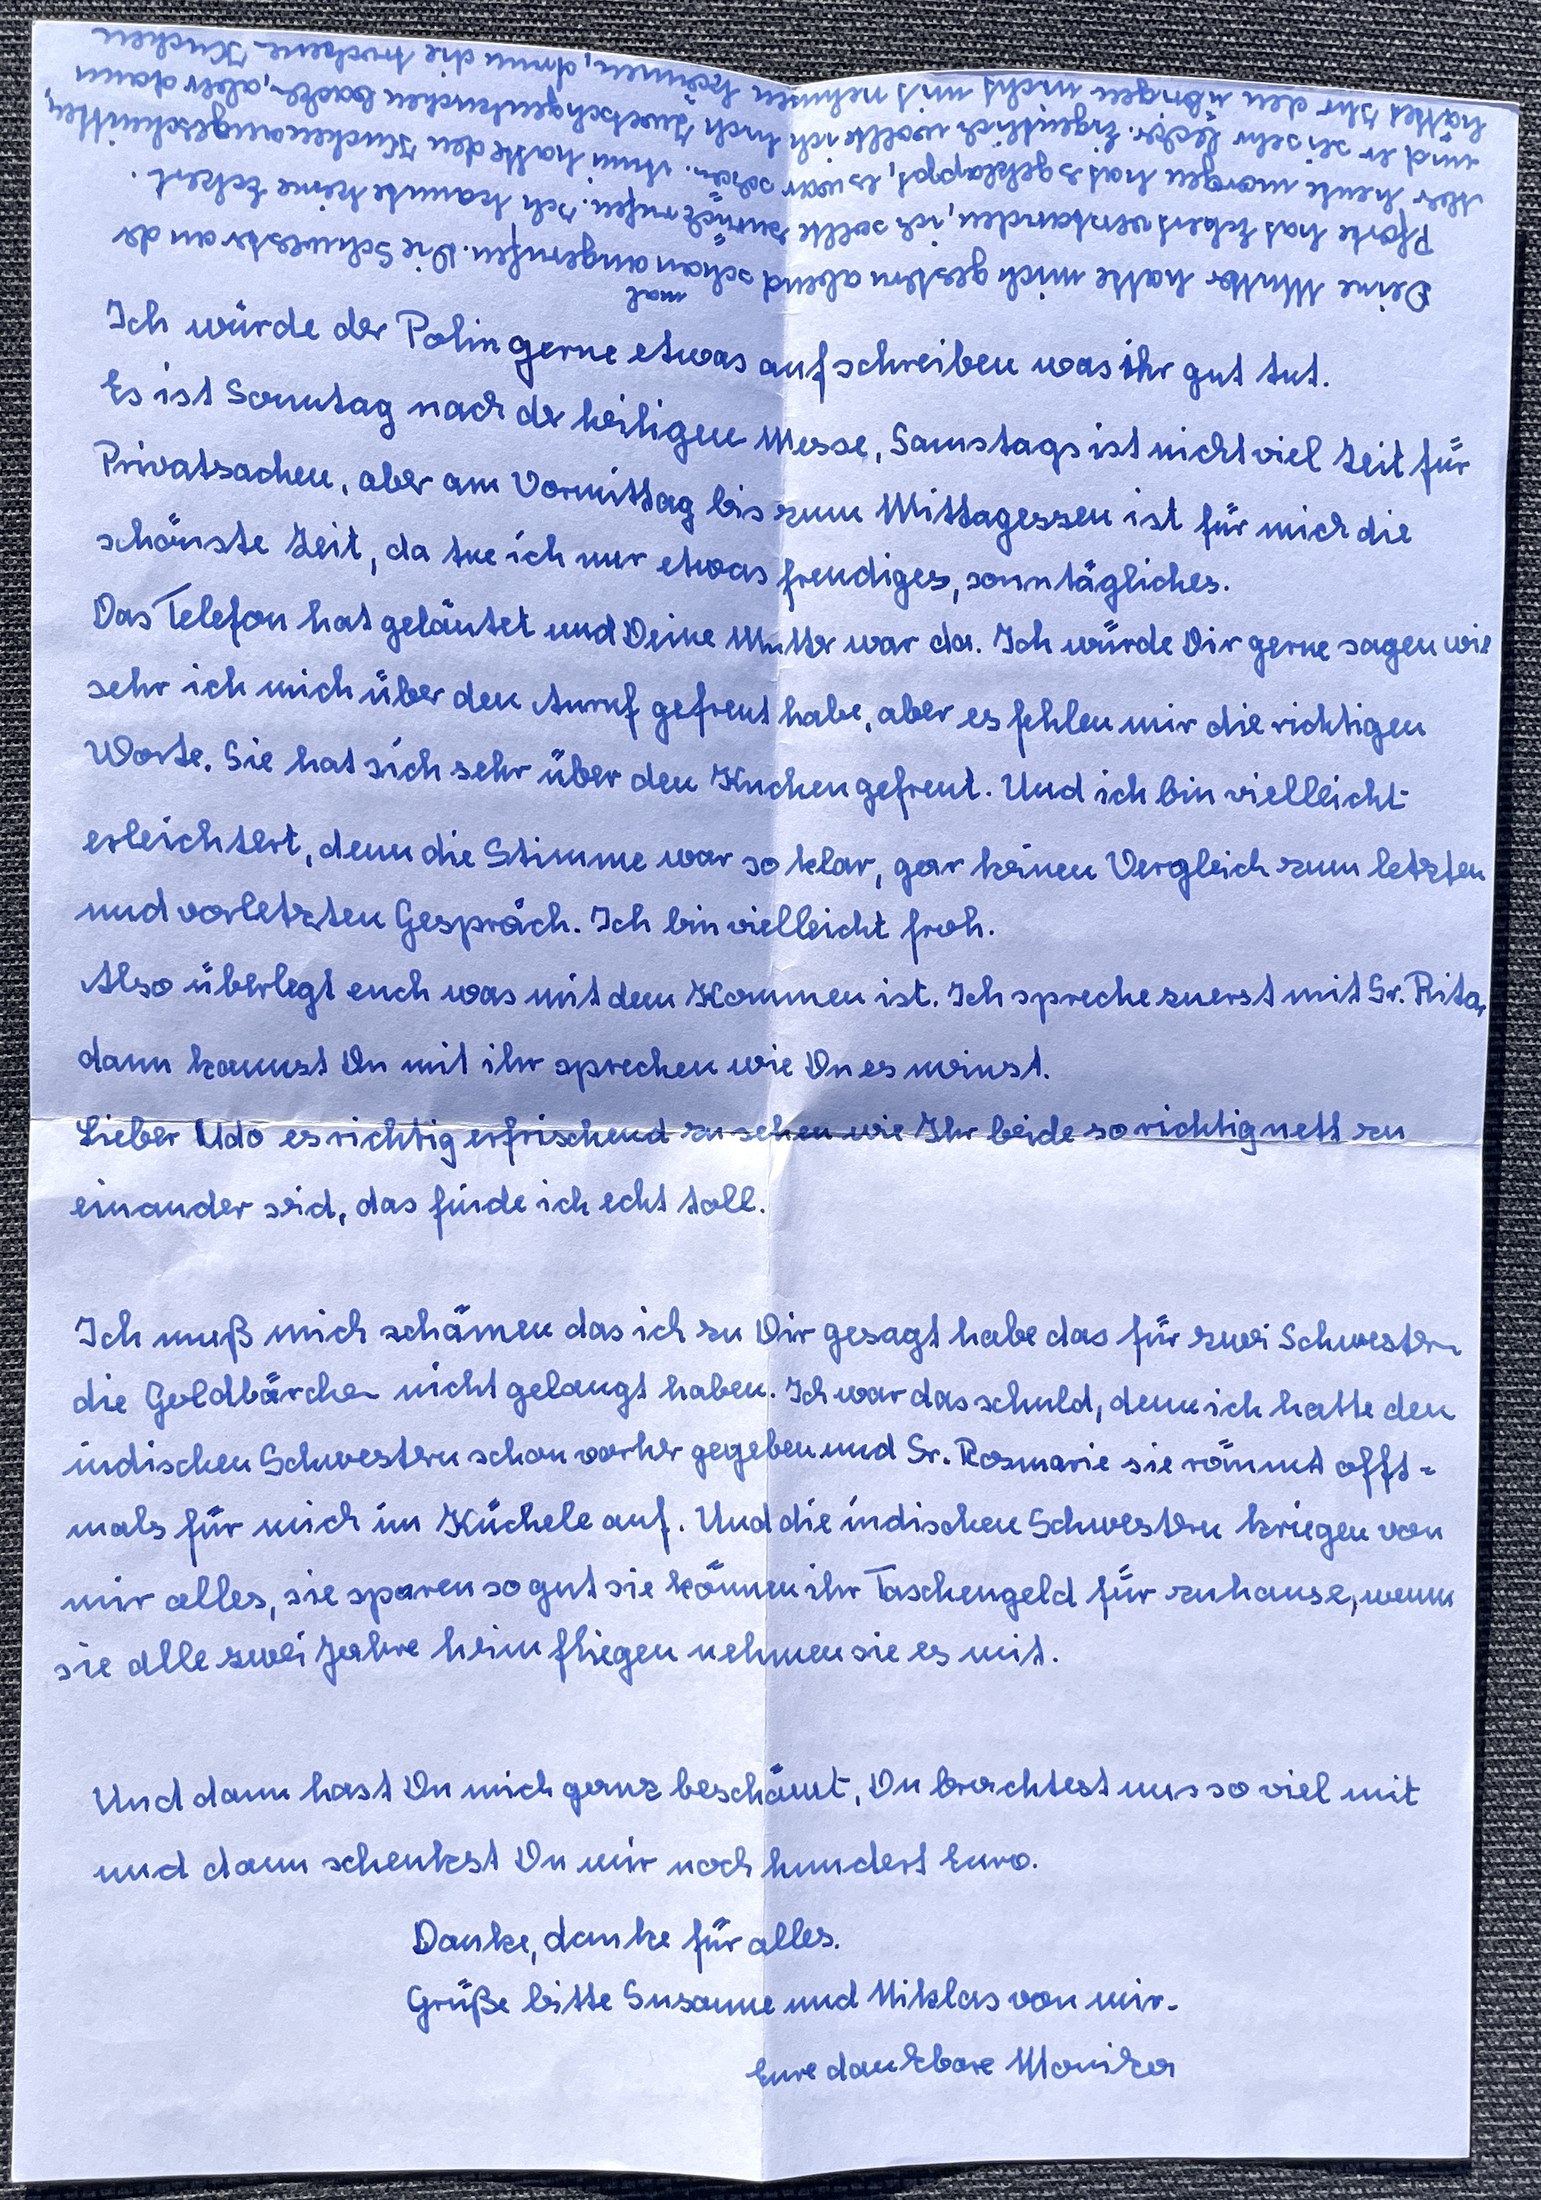 Ich würde der Polin gerne etwas aufschreiben was ihr gut tut.
Es ist Sonntag nach der heiligen Messe, Samstags ist nicht viel Zeit für
Privatsachen, aber am Vormittag bis zum Mittagessen ist für mich die
schönste Zeit, da tue ich nur etwas freudiges, sonntägliches.
Das Telefon hat geläutet und Deine Mutter war da. Ich würde Dir gerne sagen wie
sehr ich mich über den Anruf gefreut habe, aber es fehlen mir die richtigen
Worte. Sie hat sich sehr über den Kuchen gefreut. Und ich bin vielleicht
erleichtert, denn die Stimme war so klar, gar keinen Vergleich zum letzten
und vorletzten Gespräch. Ich bin vielleicht froh.
Also überlegt euch was mit dem Kommen ist. Ich spreche zuerst mit Sr. Rita,
dann kannst Du mit ihr sprechen wie Du es meinst.
Lieber Udo es richtig erfrischend zu sehen wie Ihr beide so richtig nett zu
einander seid, das finde ich echt toll.
Ich muß mich schämen das ich zu Dir gesagt habe das für zwei Schwestern
die Goldbärchen nicht gelangt haben. Ich war das schuld, denn ich hatte den
indischen Schwestern schon vorher gegeben und Sr. Rosmarie sie räumt offt-
mals für mich im Küchele auf. Und die indischen Schwestern kriegen von
mir alles, sie sparen so gut sie können ihr Taschengeld für zuhause, wenn
sie alle zwei Jahre heim fliegen nehmen sie es mit.
Und dann hast Du mich ganz beschämt, Du brachtest uns so viel mit
und dann schenkst Du mir noch hundert Euro.
Danke, danke für alles.
Grüße bitte Susanne und Niklas von mir.
Eure dankbare Monika
Deine Mutter hatte mich gestern abend schon mal angerufen. Die Schwester an der
Pforte hat Eckert verstanden, ich sollte zurück rufen. Ich kannte keine Eckert.
Aber heute morgen hat es geklappt, es war schön. Nun hatte den Kuchen angeschnitten,
und er sei sehr lecker. Eigentlich wollte ich Euch Zwetschgenkuchen backen, aber dann
hättet Ihr den übrigen nicht mit nehmen können, drum die trockene Kuchen